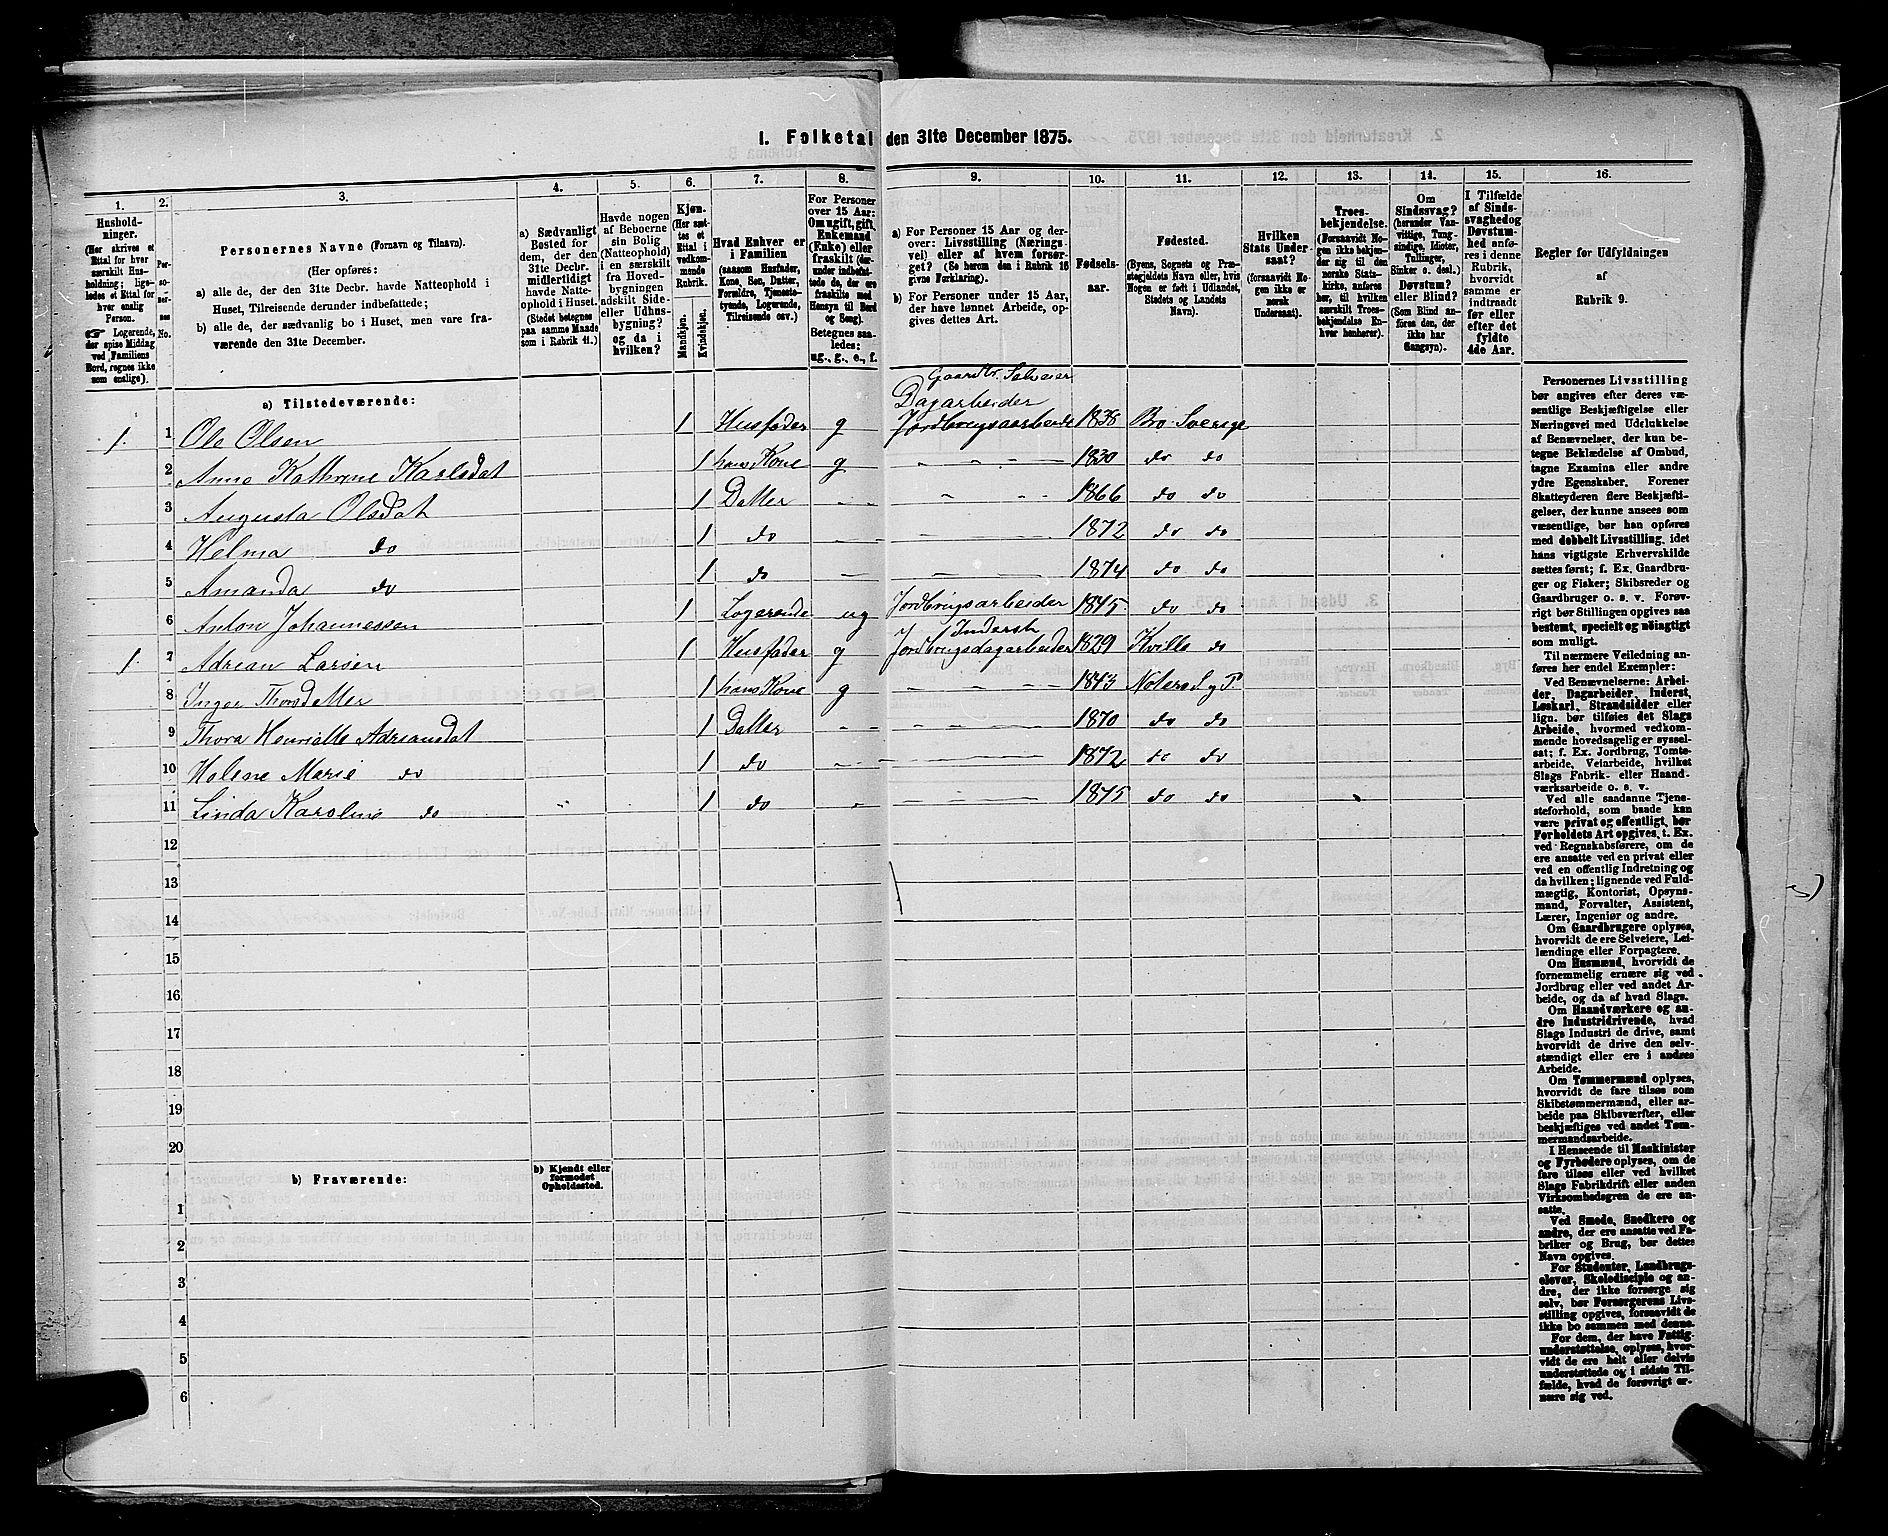 1. Folketal den 31te December 1875.
1.
Hushold-
ninger.
(Her skrives et
Ettal for hver
særskilt Hus-
holdning; lige-
ledes et Ettal for
hver enslig
Person.
☞ Logerende,
der spise Middag
ved Familiens
Bord, regnes ikke
som enslige).
2.
Per-
so-
ner-
nes
No.
3.
Personernes Navne (Fornavn og Tilnavn).
(Her opføres:
a) alle de, der den 31te Decbr. havde Natteophold i
Huset, Tilreisende derunder indbefattede;
b) alle de, der sædvanlig bo i Huset, men vare fra-
værende den 31te December.
4.
a) Sædvanligt
Bosted for
dem, der den
31te Decbr.
midlertidigt
havde Natte-
ophold i Huset.
(Stedet betegnes
paa samme Maade
som i Rubrik 11.)
5.
Havde nogen
af Beboerne
sin Bolig
(Natteophold)
i en særskilt
fra Hoved-
bygningen
adskilt Side-
eller Udhus-
bygning?
og da i
hvilken?
6.
Kjøn.
(Her sæt-
tes et
Ettal i
vedkom-
mende
Rubrik.
Mandkjøn.
Kvindekjøn.
7.
Hvad Enhver er
i Familien
(saasom Husfader,
Kone, Søn, Datter,
Forældre, Tjeneste-
tyende, Logerende,
Tilreisende osv.)
8.
For Personer
over 15 Aar:
Om ugift, gift,
Enkemand
(Enke) eller
fraskilt (der-
under indbefat-
tede de, der ere
fraskilte med
Hensyn til Bord
og Seng).
Betegnes saa-
ledes:
ug., g., e., f.
9.
a) For Personer 15 Aar og der-
over: Livsstilling (Nærings-
vei) eller af hvem forsør-
get? (Se herom den i Rubrik 16
givne Forklaring).
b) For Personer under 15 Aar,
der have lønnet Arbeide, op-
gives dettes Art.
10.
Fødsels-
aar.
11.
Fødested.
(Byens, Sognets og Præ-
stegjeldets Navn eller, hvis
Nogen er født i Udlandet,
Stedets og Landets
Navn).
12.
Hvilken
Stats Under-
saat?
(forsaavidt No-
gen ikke er
norsk
Undersaat).
13.
Troes-
bekjendelse.
(Forsaavidt No-
gen ikke bekjen-
der sig til den
norske Stats-
kirke, anføres
her, til hvilken
særskilt Troes-
bekjendelse En-
hver henhører).
14.
Om
Sindssvag?
(herunder Van-
vittige, Tung-
sindige, Idioter,
Tullinger,
Sinker o. desl.)
Døvstum?
eller Blind?
(Som Blind an-
føres den, der
ikke har
Gangsyn).
15.
I Tilfælde
af Sinds-
svaghed og
Døvstum-
hed anfø-
res i denne
Rubrik,
hvorvidt
samme er
indtraadt
før eller
efter det
fyldte
4de Aar.
16.
Regler for Udfyldningen
af
Rubrik 9.
a) Tilstedeværende:
Gaardbr. Selveier
Dagarbeider
1. 1 Ole Olsen 1 Husfader g Jordbrugsaarbeide 1838 Bro Sverige
2 Anne Kathrine Karlsdat 1 hans Kone g " - - - 1830 do do
3 Augusta Olsdat 1 Datter - - " - - 1866 do do
4 Helma do 1 do - - - - 1872 do do
5 Amanda do 1 do - - - - 1874 do do
6 Anton Johannessen 1 Logerende ug Jordbrugsarbeider 1845 do do
Inderst
1. 7 Adrian Larsen 1 Husfader g Jordbrugsdagarbeider 1829 Kville do
8 Inger Thorsdatter 1 hans Kone g - - - 1843
9 Thora Henriette Adriansdat 1 Datter - - - - 1870 do do
10 Helene Marie do 1 do - - - - 1872 do do
11 Linda Karoline do " 1 do - - - 1875 do do
12
13
14
15
16
17
18
19
20
b) Fraværende:
b) Kjendt eller
formodet
Opholdssted.
1
2
3
4
5
6
Personernes Livsstilling
bør angives efter deres væ-
sentlige Beskjæftigelse eller
Næringsvei med Udelukkelse
af Benævnelser, der kun be-
tegne Beklædelse af Ombud,
tagne Examina eller andre
ydre Egenskaber. Forener
Skatteyderen flere Beskjæfti-
gelser, der kunne ansees som
væsentlige, bør han opføres
med dobbelt Livsstilling, idet
hans vigtigste Erhvervskilde
sættes først; f. Ex. Gaardbru-
ger og Fisker; Skibsreder og
Gaardbruger o. s. v. Forøv-
rigt bør Stillingen opgives saa
bestemt, specielt og nøiagtigt
som muligt.
Til nærmere Veiledning an-
føres her endel Exempler:
Ved Benævnelserne: Arbei-
der, Dagarbeider, Inderst,
Løskarl, Strandsidder eller
lign. bør tilføies det Slags
Arbeide, hvormed vedkom-
mende hovedsagelig er syssel-
sat; f. Ex. Jordbrug, Tomte-
arbeide, Veiarbeide, hvilket
Slags Fabrik- eller Haand-
værksarbeide o. s. v.
Ved alle saadanne Tjene-
steforhold, som baade kan
være privat og offentligt, bør
Forholdets Art opgives, t. Ex.
ved Regnskabsførere, om de
ere ansatte ved en privat eller
ved en offentlig Indretning og
da hvilken; lignende ved Fuld-
mægtig, Kontorist, Opsyns-
mand, Forvalter, Assistent,
Lærer, Ingeniør og andre.
Om Gaardbrugere oplyses,
hvorvidt de ere Selveiere, Lei-
lændinge eller Forpagtere.
Om Husmænd, hvorvidt de
fornemmelig ernære sig ved
Jordbrug eller ved andet Ar-
beide, og da af hvad Slags.
Om Haandværkere og an-
dre Industridrivende, hvad
Slags Industri de drive, samt
hvorvidt de drive den selv-
stændigt eller ere i andres
Arbeide.
Om Tømmermænd oplyses,
hvorvidt de fare tilsøs som
Skibstømmermænd, eller ar-
beide paa Skibsværfter, eller
beskjæftiges ved andet Tøm-
mermandsarbeide.
I Henseende til Maskinister
og Fyrbødere oplyses, om de
fare tilsøs eller ved hvilket
Slags Fabrikdrift eller anden
Virksomhedsgren de ere an-
satte.
Ved Smede, Snedkere og
andre, der ere ansatte ved Fa-
briker og Brug, bør dettes
Navn opgives.
For Studenter, Landbrugs-
elever, Skoledisciple og an-
dre, der ikke forsørge sig
selv, bør Forsørgerens Livs-
stilling opgives, forsaavidt de
ikke bo sammen med denne.
For dem, der have Fattig-
understøttelse, oplyses, hvor-
vidt de ere helt eller delvis
understøttede og i sidste Til-
fælde, hvad de forøvrigt er-
nære sig ved.